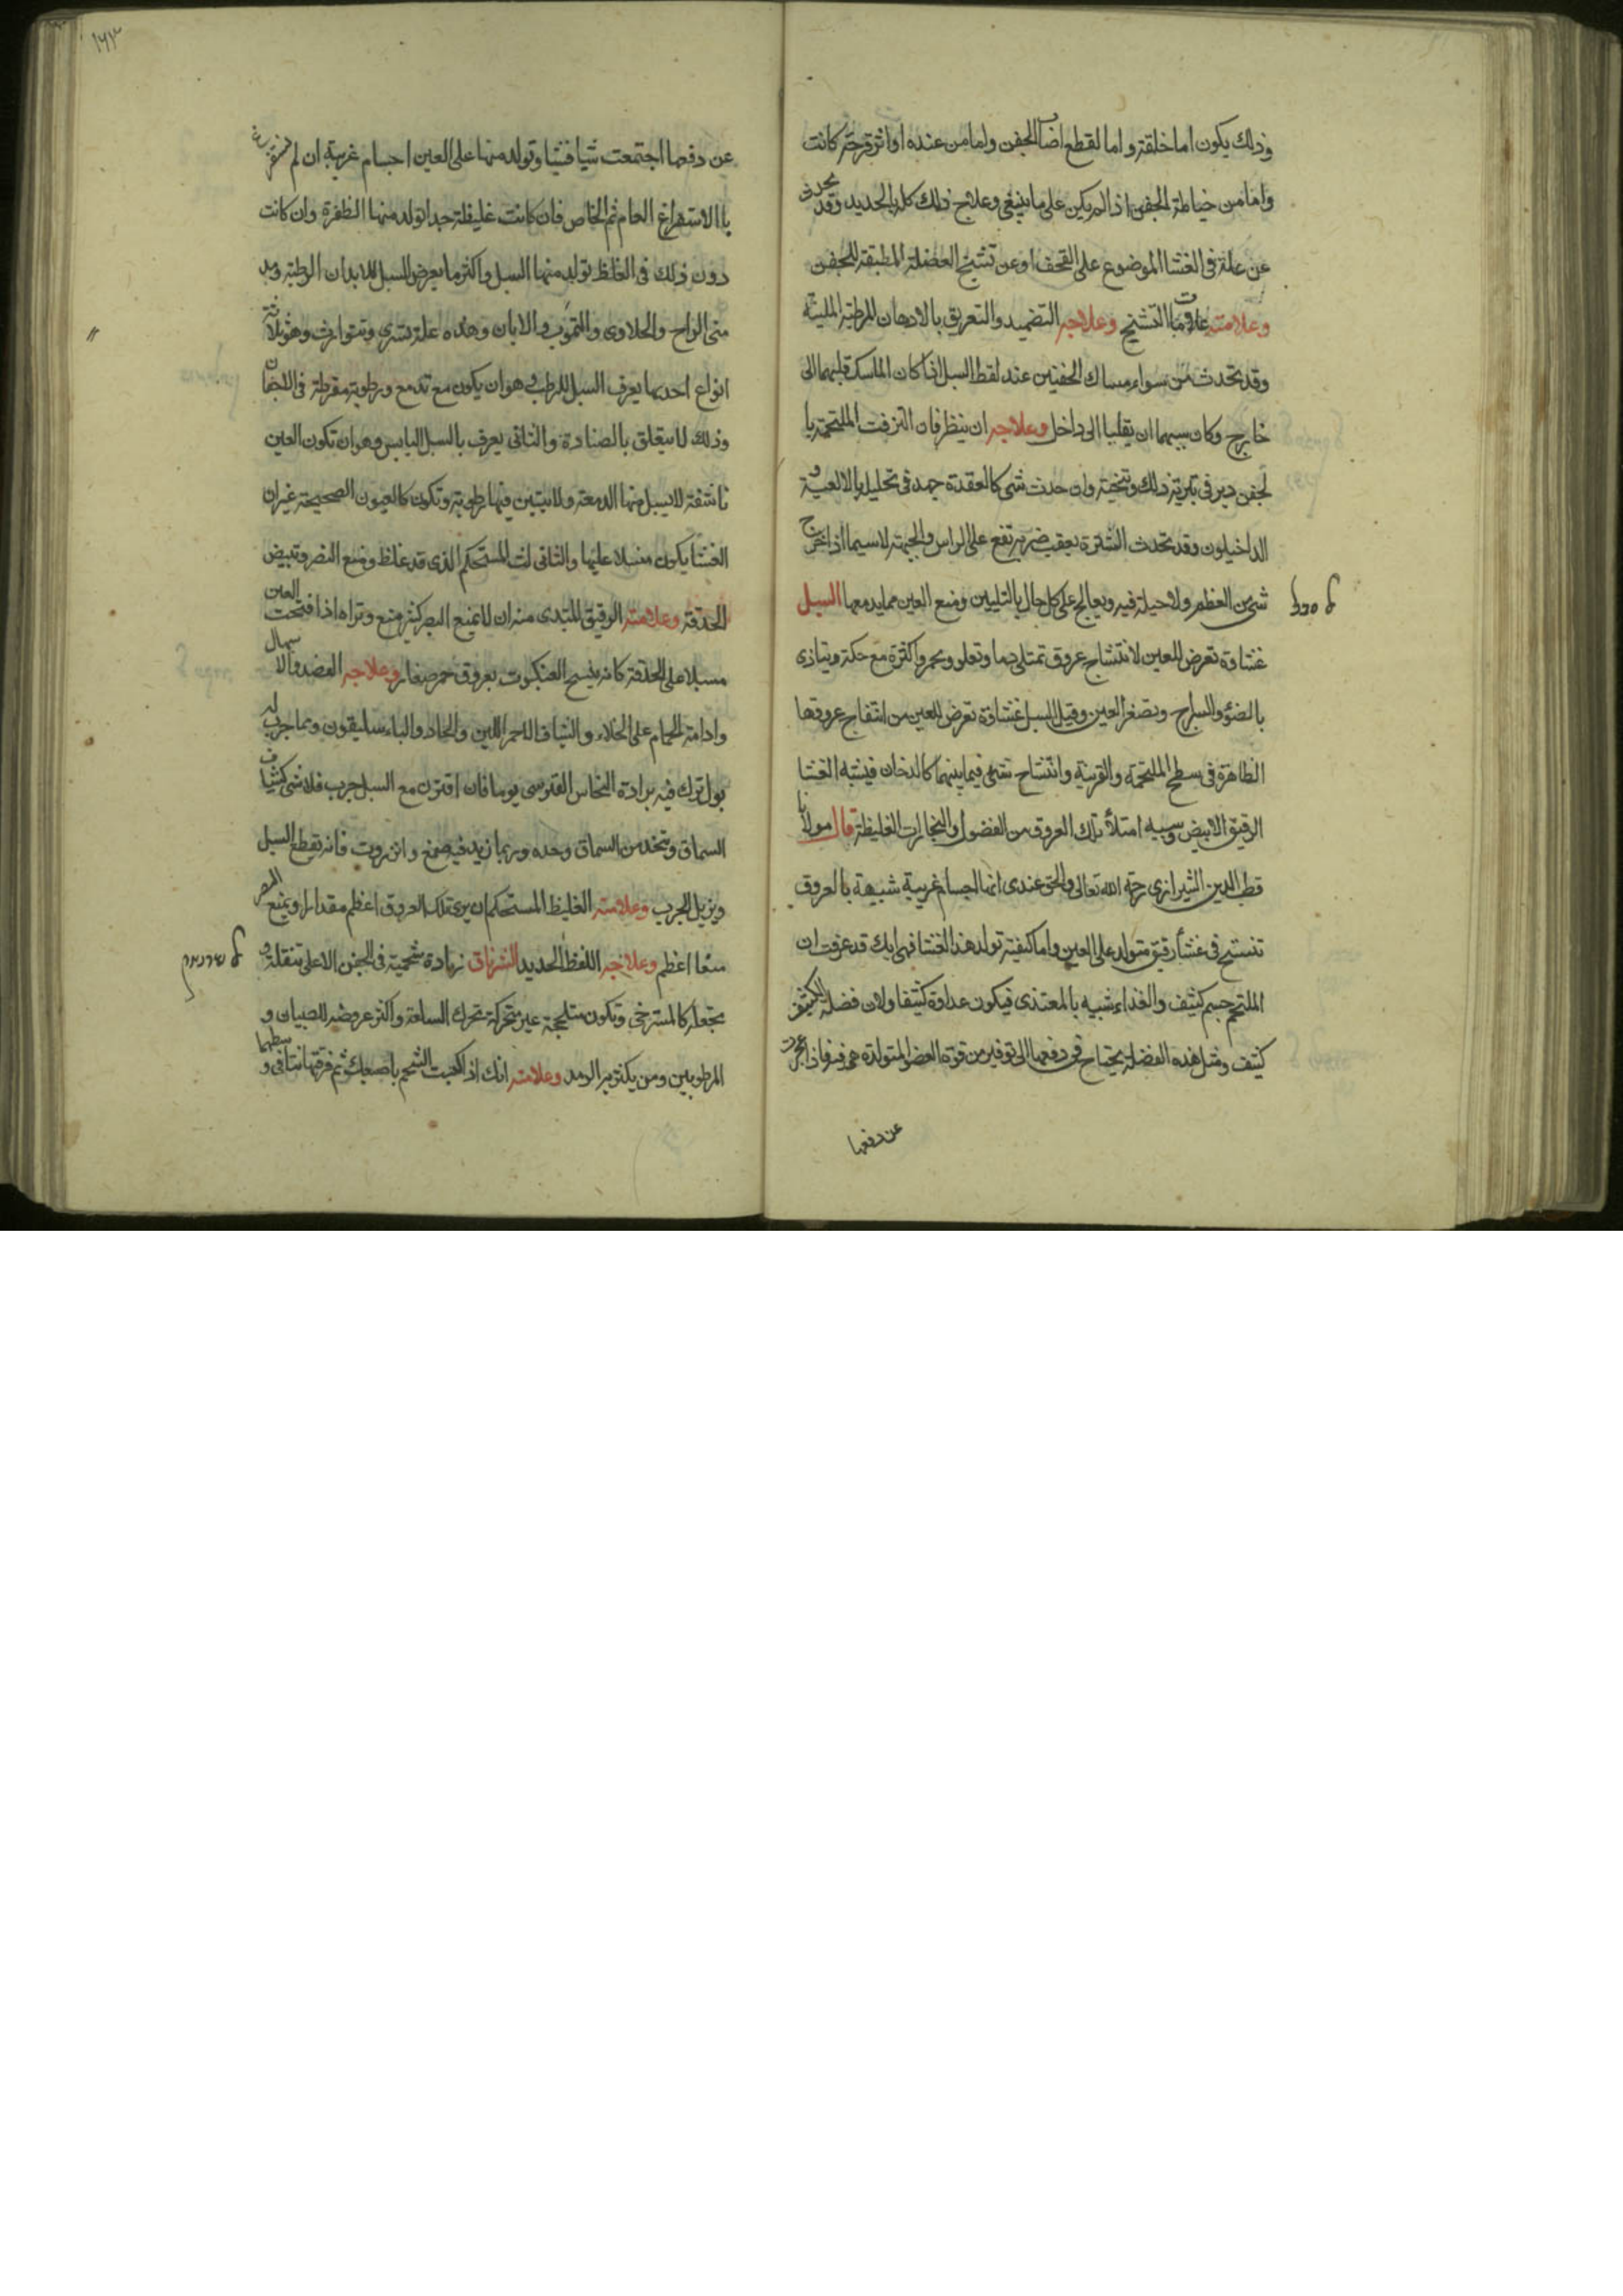 وذلك يكون اما خلقة و اما لقطع اصاب الجفن واما من عنده او اثر قرحة كانت
واما من خياطة الجفن اذا لم يكن على ما ينبغي وعلاج ذلك كله بالحديد وقد يحدث
عن علة في الغشا الموضوع على القحف او عن تشنج العضلة المطبقة للجفن
وعلامته علامات التشنج وعلاجه التضميد والتعريق بالادهان المرطبة الملينة
وقد تحدث من سواء مساك الجفنين عند لقط السبل اذا كان الماسك قلبهما الى
خارج وكان سبيهما ان يقلبا الى داخل وعلاجه ان ينظر فان التزقت الملتحمة با
لجفن دبر في تبرية ذلك وتنحيته وان حدث شى كالعقدة جهد في تحليله بالالعبة و
الداخيلون وقد تحدث الشترة بعقب ضربة تقع على الراس والجبهة لاسيما اذا خرج
شى من العظم ولا حيلة فيه ويعالج على كل حال بالتليين ومنع العين مما يدمعها السبل
غشاوة تعرض للعين لانتساج عروق تمتلى دما وتعلو وتحمر واكثره مع حكة ويتاذى
بالضوء والسراج وتصغر العين وقيل السبل غشاوة تعرض للعين من انتفاخ عروقها
الظاهرة في سطح الملتحمة والقرنية وانتساج شى فيما بينهما كالدخان فيشبه الغشا
الرقيق الابيض وسببه امتلأ تلك العروق من الفضول والبخارات الغليظة قال مولانا
قطب الدين الشيرازى رحمه الله تعالى والحق عندى انها اجسام غريبة شبيهة بالعروق
تنتسج في غشأ رقيق متولد على العين واما كيفية تولد هذا الغشا فهى انك قد عرفت ان
الملتحم جسم كثيف والغذاء شبيه بالمغتذى فيكون غذاوه كثيفا ولان فضلة الكثيف
كثيف ومثل هذه الفضلة يحتاج في دفعها الى توفير من قوة العضو المتولدة هى فيه فاذا عجزت
عن دفعها
١٦٣
عن دفعها اجتمعت شيا فشيا وتولد منها على العين اجسام غريبة ان لم
با الاستفراغ العام ثم الخاص فان كانت غليظة جدا تولد منها الظفرة وان كانت
دون ذلك في الغلظ تولد منها السبل واكثر ما يعرض السبل للابدان الرطبة
والحلاوى والالبان وهذه علة تسرى وتتوارث وهو ثلاثة
انواع احدها يعرف السبل الرطب وهو ان يكون مع تدمع ورطوبة مفرطة في الاجفان
وذلك لا يتعلق بالصنارة والثانى يعرف بالسبل اليابس وهو ان تكون العين
ناشفة لا يسيل منها الدمعة ولا يتبين فيها رطوبة وتكون كالعيون الصحيحة غير ان
الغشا يكون منسبلا عليها والثالث المستحكم الذى قد غلظ ومنع البصر وتبيض
الحدقة وعلامته الرقيق المبتدى منه ان لا يمنع البصر كثير منع وتراه اذا فتحت العين
مسبلا على الحدقة كانه نسج العنكبوت بعروق حمر صغار وعلاجه الفصد والاسهال
وادامة الحمام على الخلاء والشياف الاحمر اللين والحاد والباسليقون ومما جرب له
بول ترك فيه برادة النحاس القبرسى يوما فان اقترن مع السبل جرب فلا شى كشياف
السماق ويتخذ من السماق وحده وربما زيد فيه صمغ وانزروت فانه يقطع السبل
ويزيل الجرب وعلامته الغليظ المستحكم ان يرى تلك العروق اعظم مقدارا ويمنع البصر
منعا اعظم وعلاجه اللقط الحديد الشرناق زيادة شحمية في الجفن الاعلى تثقله و
تجعله كالمسترخى وتكون ملتحجة غير متحركة تحرك السلعة واكثر عروضه للصبيان و
المرطوبين ومن يكثر به الرمد وعلامته انك اذا كبست الشحم باصبعك ثم فرقتها نتا في وسطها